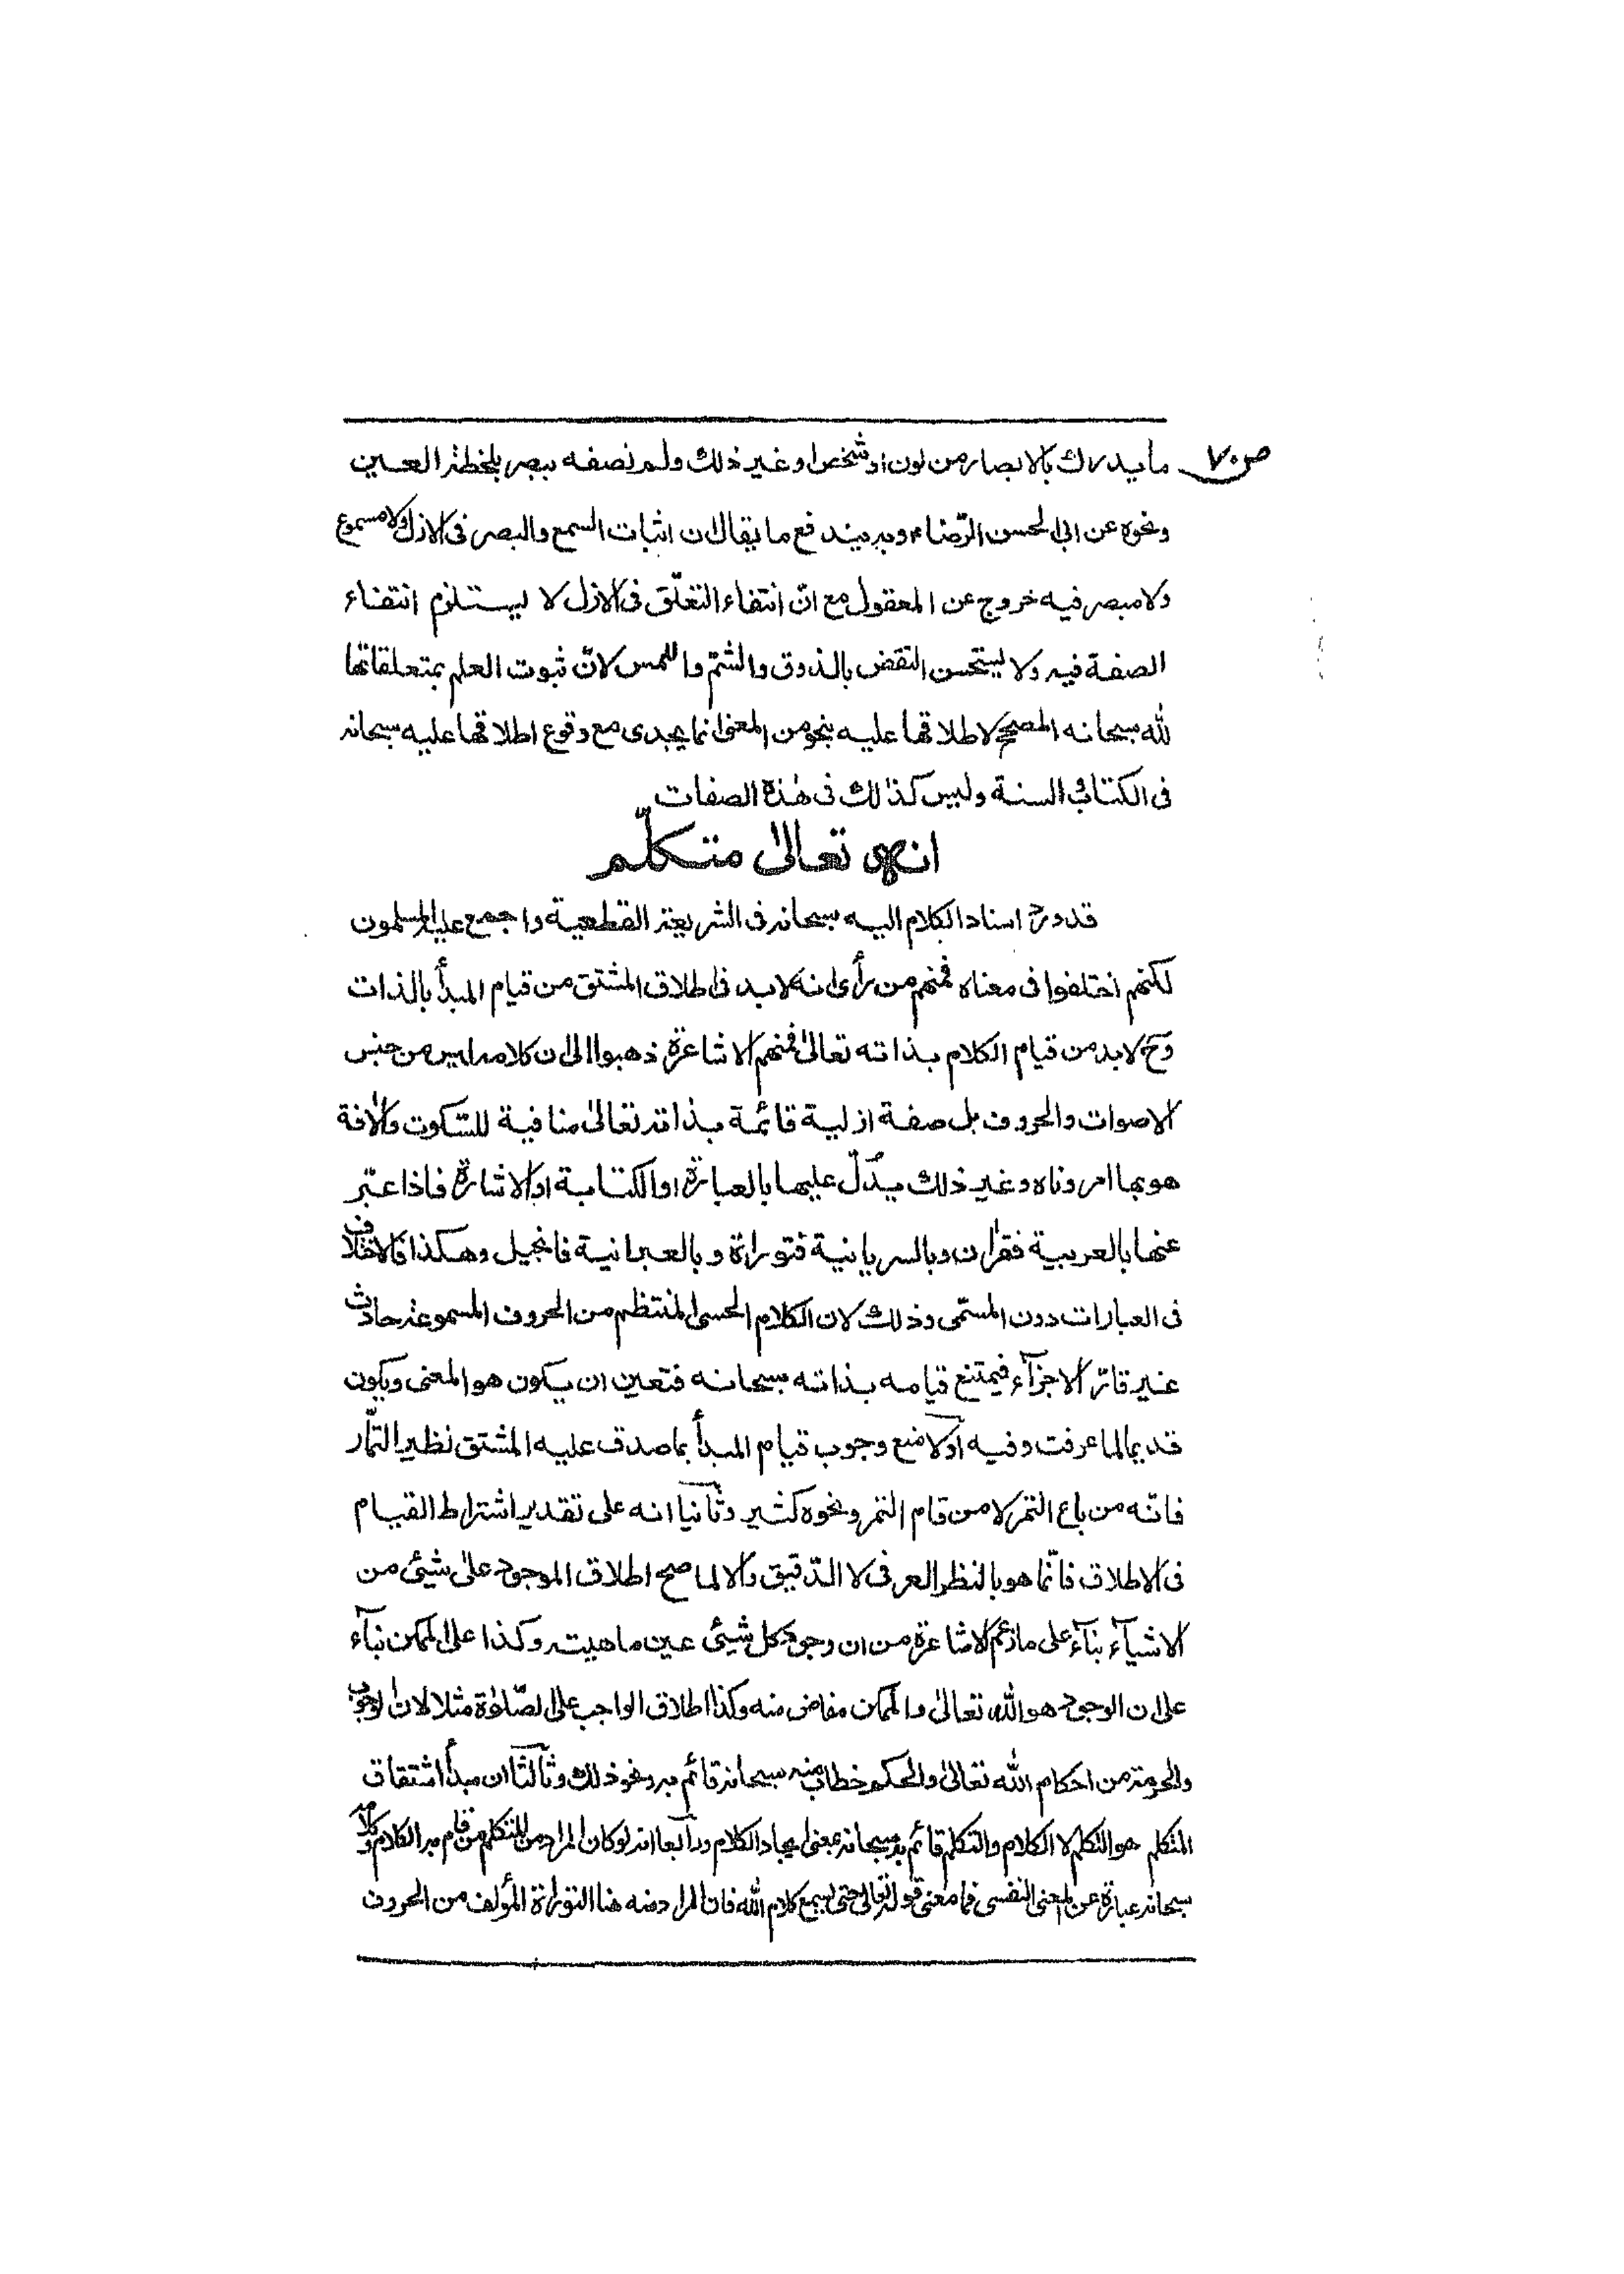 ص٧٠
ما يدرك بالابصار من لون او شخص او غير ذلك ولم نصفه ببصر بلحظة العين
ونحوه عن ابى الحسن الرّضاء وبه يندفع ما يقال ان اثبات السمع والبصر فى الازل ولا مسموع
ولا مبصر فيه خروج عن المعقول مع انّ انتفاء التعلّق فى الازل لا يستلزم انتفاء
الصفة فيه ولا يستحسن النقض بالذوق والشمّ واللمس لانّ ثبوت العلم بمتعلقاتها
لله سبحانه المصحح لاطلاقها عليه بنحو من المعنى انما يجدى مع وقوع اطلاقها عليه سبحانه
فى الكتاب والسنة وليس كذلك فى هذه الصفات
انه تعالى متكلّم
قد ورد اسناد الكلام اليه سبحانه فى الشريعة القطعية واجمع عليه المسلمون
لكنهم اختلفوا فى معناه فمنهم من رأى انه لا بد فى اطلاق المشتق من قيام المبدأ بالذات
وح لا بد من قيام الكلام بذاته تعالى فمنهم الاشاعرة ذهبوا الى ان كلامه ليس من جنس
الاصوات والحروف بل صفة ازلية قائمة بذاته تعالى منافية للسّكوت والآفة
هو بها امر وناه وغير ذلك يدلّ عليها بالعبارة او الكتابة او الاشارة فاذا عبّر
عنها بالعربية فقرآن وبالسريانية فتوراة وبالعبرانية فانجيل وهكذا فالاختلاف
فى العبارات دون المسمّى وذلك لان الكلام الحسى المنتظم من الحروف المسموعة حادث
غير قارّ الاجزآء فيمتنع قيامه بذاته سبحانه فتعين ان يكون هو المعنى ويكون
قديما لما عرفت وفيه اولا منع وجوب قيام المبدأ بما صدق عليه المشتق نظير التمّار
فانّه من باع التمر لا من قام التمر ونحوه كثير وثانيا انه على تقدير اشتراط القيام
فى الاطلاق فانّما هو بالنظر العرفى لا الدّقيق والا لما صح اطلاق الموجود على شيئى من
الاشيآء بنآء على ما زعم الاشاعرة من ان وجود كل شيئى عين ماهيته وكذا على الممكن بنآء
على ان الوجود هو الله تعالى والممكن مفاض منه وكذا اطلاق الواجب على الصّلوة مثلا لان الوجوب
والحرمة من احكام الله تعالى والحكم خطاب منه سبحانه قائم به ونحو ذلك وثالثا ان مبدأ اشتقاق
المتكلم هو التكلم لا الكلام والتكلم قائم به سبحانه بمعنى ايجاد الكلام ورابعا انه لو كان المراد من المتكلم من قام به الكلام وكلامه
سبحانه عبارة عن المعنى النفسى فما معنى قوله تعالى حتى يسمع كلام الله فان المراد منه هنا التوراة المؤلف من الحروف